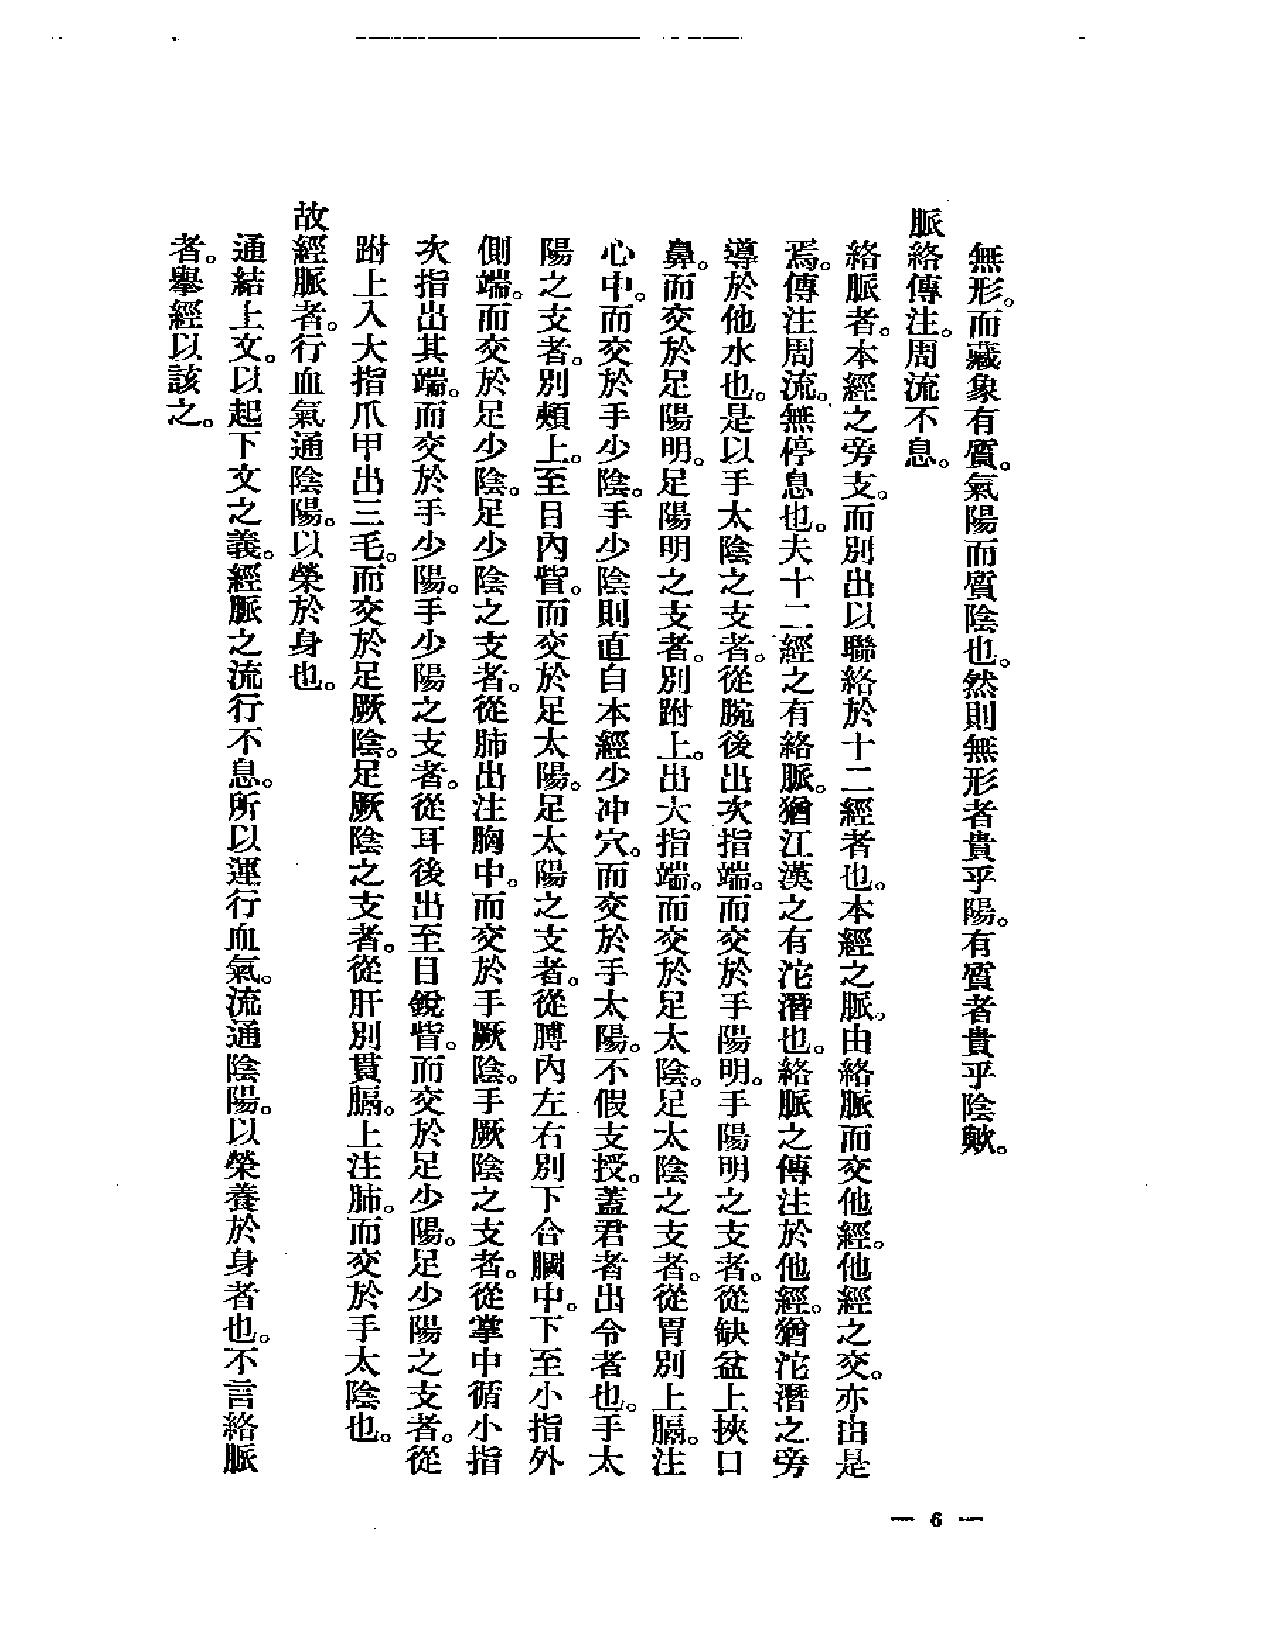 無形。而藏象有質。氣陽而質陰也。然則無形者貴乎陽。有質者貴乎陰歟。
脈絡傳注。周流不息。
絡脈者。本經之旁支。而別出以聯絡於十二經者也。本經之脈。由絡脈而交他經。他經之交。亦由是
焉。傳注周流。無停息也。夫十二經之有絡脈。猶江漢之有沱潛也。絡脈之傳注於他經。猶沱潛之旁
導於他水也。是以手太陰之支者。從腕後出次指端。而交於手陽明。手陽明之支者。從缺盆上挾口
鼻。而交於足陽明。足陽明之支者。別跗上。出大指端。而交於足太陰。足太陰之支者。從胃別上膈。注
心中。而交於手少陰。手少陰則直自本經少冲穴。而交於手太陽。不假支授。蓋君者出令者也。手太
陽之支者。別頰上。至目內眥。而交於足太陽。足太陽之支者。從膊內左右別下合膕中。下至小指外
側端。而交於足少陰。足少陰之支者。從肺出注胸中。而交於手厥陰。手厥陰之支者。從掌中循小指
次指出其端。而交於手少陽。手少陽之支者。從耳後出至目銳眥。而交於足少陽。足少陽之支者。從
跗上入大指爪甲出三毛。而交於足厥陰。足厥陰之支者。從肝別貫膈。上注肺。而交於手太陰也。
故經脈者。行血氣通陰陽。以榮於身也。
通結上文。以起下文之義。經脈之流行不息。所以運行血氣。流通陰陽。以榮養於身者也。不言絡脈
者。舉經以該之。
— 6 —